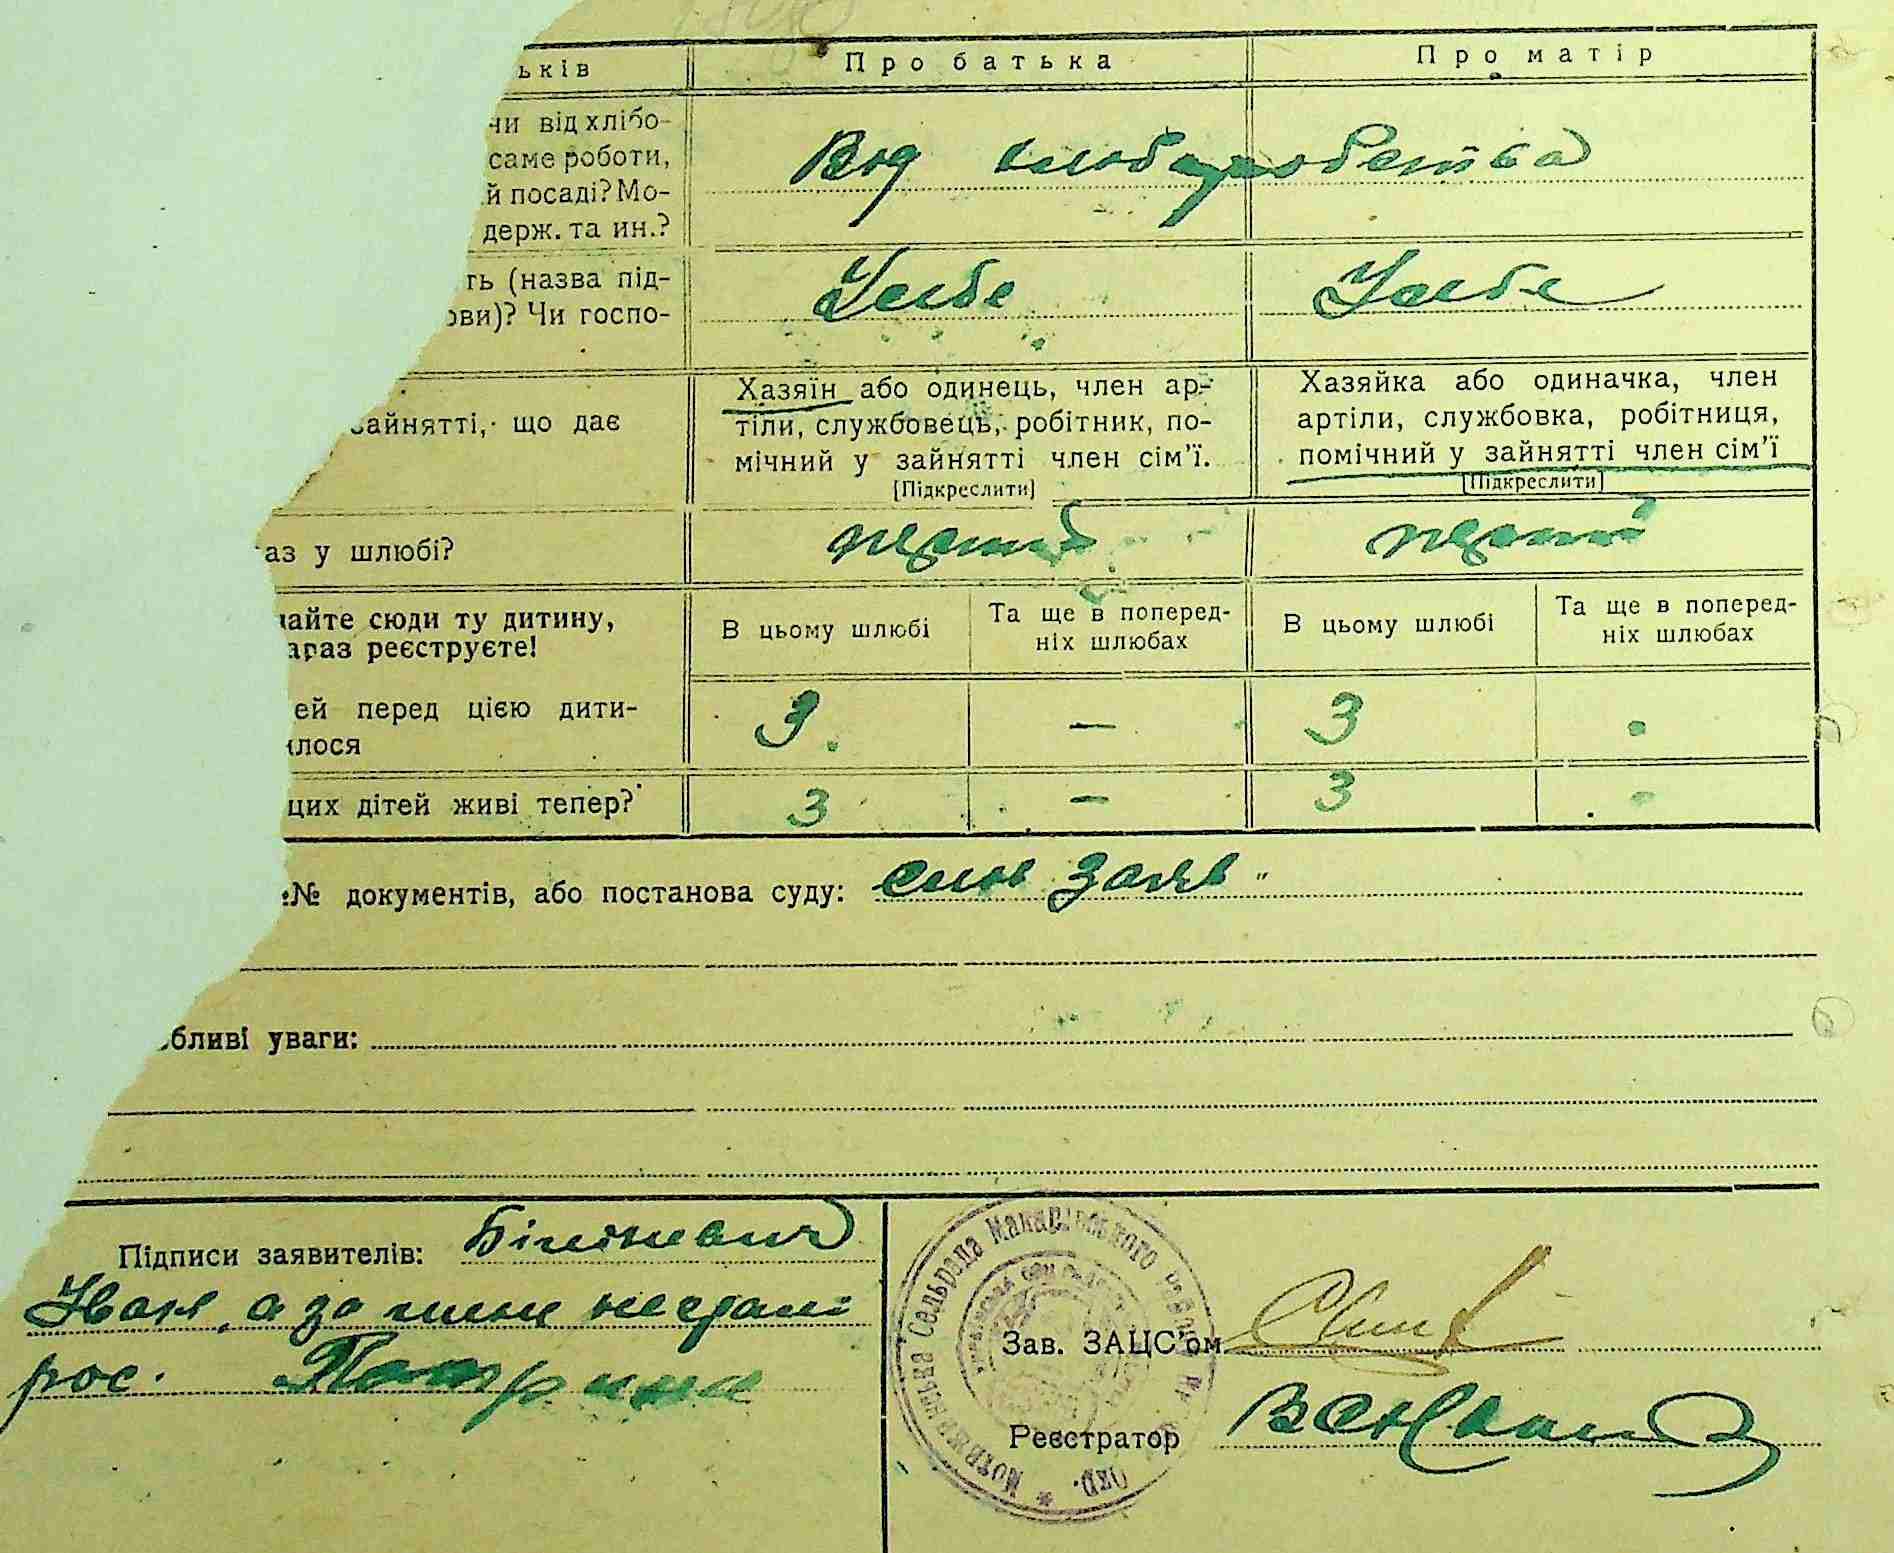 ьків Про батька Про матір
чи від хлібо-
саме роботи,
й посаді? Мо-
держ. та ин.?
Від хліборобства
ть (назва під-
ови)? Чи госпо-
У себе У себе
зайнятті, що дає
Хазяїн або одинець, член ар-
тіли, службовець, робітник, по-
мічний у зайнятті член сім'ї.
[Підкреслити]
Хазяйка або одиначка, член
артіли, службовка, робітниця,
помічний у зайнятті член сім'ї
[Підкреслити]
аз у шлюбі? перший перший
айте сюди ту дитину,
араз реєструєте!
В цьому шлюбі
Та ще в поперед-
ніх шлюбах
В цьому шлюбі
Та ще в поперед-
ніх шлюбах
ей перед цією дити-
илося
3. — 3 .
цих дітей живі тепер? 3 — 3 .
№ документів, або постанова суду: слов заяв "
бливі уваги:
Підписи заявителів:
Іван, а за
рос.
Сельрада Макарівського Району
Окр.
Зав. ЗАЦС'ом
Реєстратор